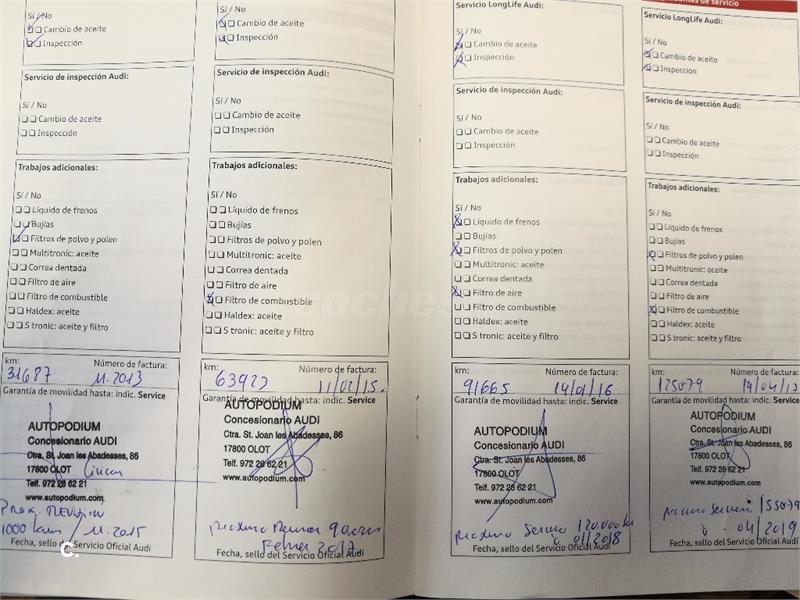 Sí / No
Cambio de aceite
Inspección
Servicio de inspección Audi:
Sí / No
Cambio de aceite
Inspección
Trabajos adicionales:
Sí / No
Líquido de frenos
Bujías
Filtros de polvo y polen
Multitronic: aceite
Correa dentada
Filtro de aire
Filtro de combustible
Haldex: aceite
S tronic: aceite y filtro
km:
Número de factura:
31687 11.2013
Garantía de movilidad hasta: indic. Service
AUTOPODIUM
Concesionario AUDI
Ctra. St. Joan les Abadesses, 86
17800 OLOT
Telf. 972 26 62 21
www.autopodium.com
11.2015
Fecha, sello del Servicio Oficial Audi
Sí / No
Cambio de aceite
Inspección
Servicio de inspección Audi:
Sí / No
Cambio de aceite
Inspección
Trabajos adicionales:
Sí / No
Líquido de frenos
Bujías
Filtros de polvo y polen
Multitronic: aceite
Correa dentada
Filtro de aire
Filtro de combustible
Haldex: aceite
S tronic: aceite y filtro
km:
Número de factura:
63923 11/02/15.
Garantía de movilidad hasta: indic. Service
AUTOPODIUM
Concesionario AUDI
Ctra. St. Joan les Abadesses, 86
17800 OLOT
Telf. 972 26 62 21
www.autopodium.com
Fecha, sello del Servicio Oficial Audi
Servicio LongLife Audi:
Sí / No
Cambio de aceite
Inspección
Servicio de inspección Audi:
Sí / No
Cambio de aceite
Inspección
Trabajos adicionales:
Sí / No
Líquido de frenos
Bujías
Filtros de polvo y polen
Multitronic: aceite
Correa dentada
Filtro de aire
Filtro de combustible
Haldex: aceite
S tronic: aceite y filtro
km:
Número de factura:
91665 14/01/16
Garantía de movilidad hasta: indic. Service
AUTOPODIUM
Concesionario AUDI
Ctra. St. Joan les Abadesses, 86
17800 OLOT
Telf. 972 26 62 21
www.autopodium.com
proximo Servicio 120.000 km
01/2018
Fecha, sello del Servicio Oficial Audi
de servicio
Servicio LongLife Audi:
Sí / No
Cambio de aceite
Inspección
Servicio de inspección Audi:
Sí / No
Cambio de aceite
Inspección
Trabajos adicionales:
Sí / No
Líquido de frenos
Bujías
Filtros de polvo y polen
Multitronic: aceite
Correa dentada
Filtro de aire
Filtro de combustible
Haldex: aceite
S tronic: aceite y filtro
km:
Número de factura:
125079
Garantía de movilidad hasta: indic. Service
AUTOPODIUM
Concesionario AUDI
Ctra. St. Joan les Abadesses, 86
17800 OLOT
Telf. 972 26 62 21
www.autopodium.com
155079
04/2019
Fecha, sello del Servicio Oficial Audi
coches
c.